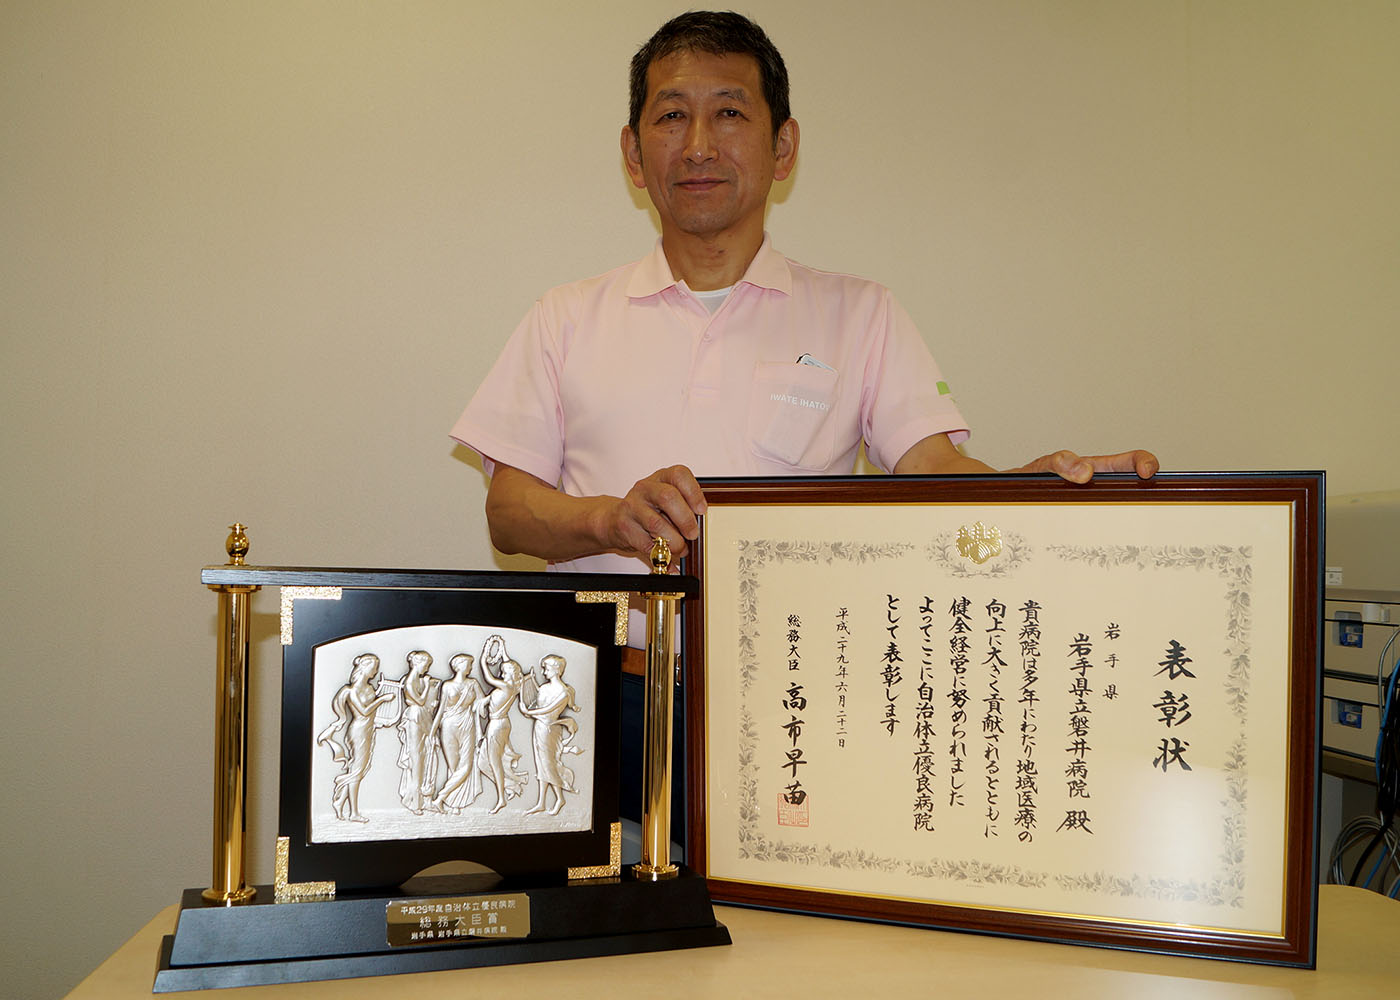 IWATE IHATO
表彰状
岩手県
岩手県立磐井病院 殿
貴病院は多年にわたり地域医療の
向上に大きく貢献されるとともに
健全経営に努められました
よってここに自治体立優良病院
として表彰します
平成二十九年六月二十二日
総務大臣 高市早苗
平成29年度自治体立優良病院
総務大臣賞
岩手県 岩手県立磐井病院 殿